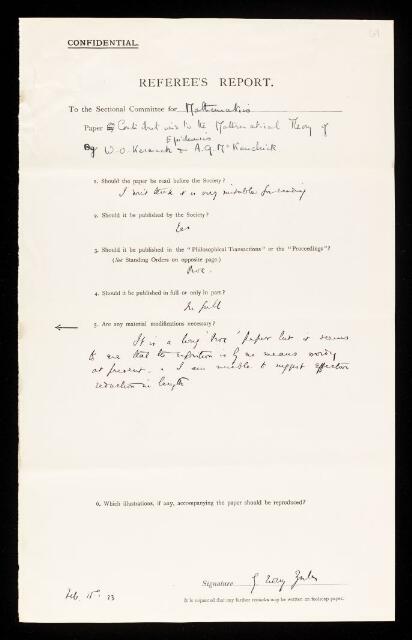 69
CONFIDENTIAL.
REFEREE'S REPORT.
To the Sectional Committee for Mathematics
Paper Contributions to the Mathematical Theory of
Epidemics
By W. O. Kermack & A. G. McKendrick
1. Should the paper be read before the Society?
I don't think it is very suitable for reading
2. Should it be published by the Society?
Yes
3. Should it be published in the "Philosophical Transactions" or the "Proceedings"?
(See Standing Orders on opposite page.)
Proc.
4. Should it be published in full or only in part?
In full
5. Are any material modifications necessary?
It is a long 'Proc' paper but it seems
to me that the exposition is by no means wordy
at present. I am unable to suggest effective
reduction in length
6. Which illustrations, if any, accompanying the paper should be reproduced?
Signature G Udny Yule
It is requested that any further remarks may be written on foolscap paper.
Feb. 15